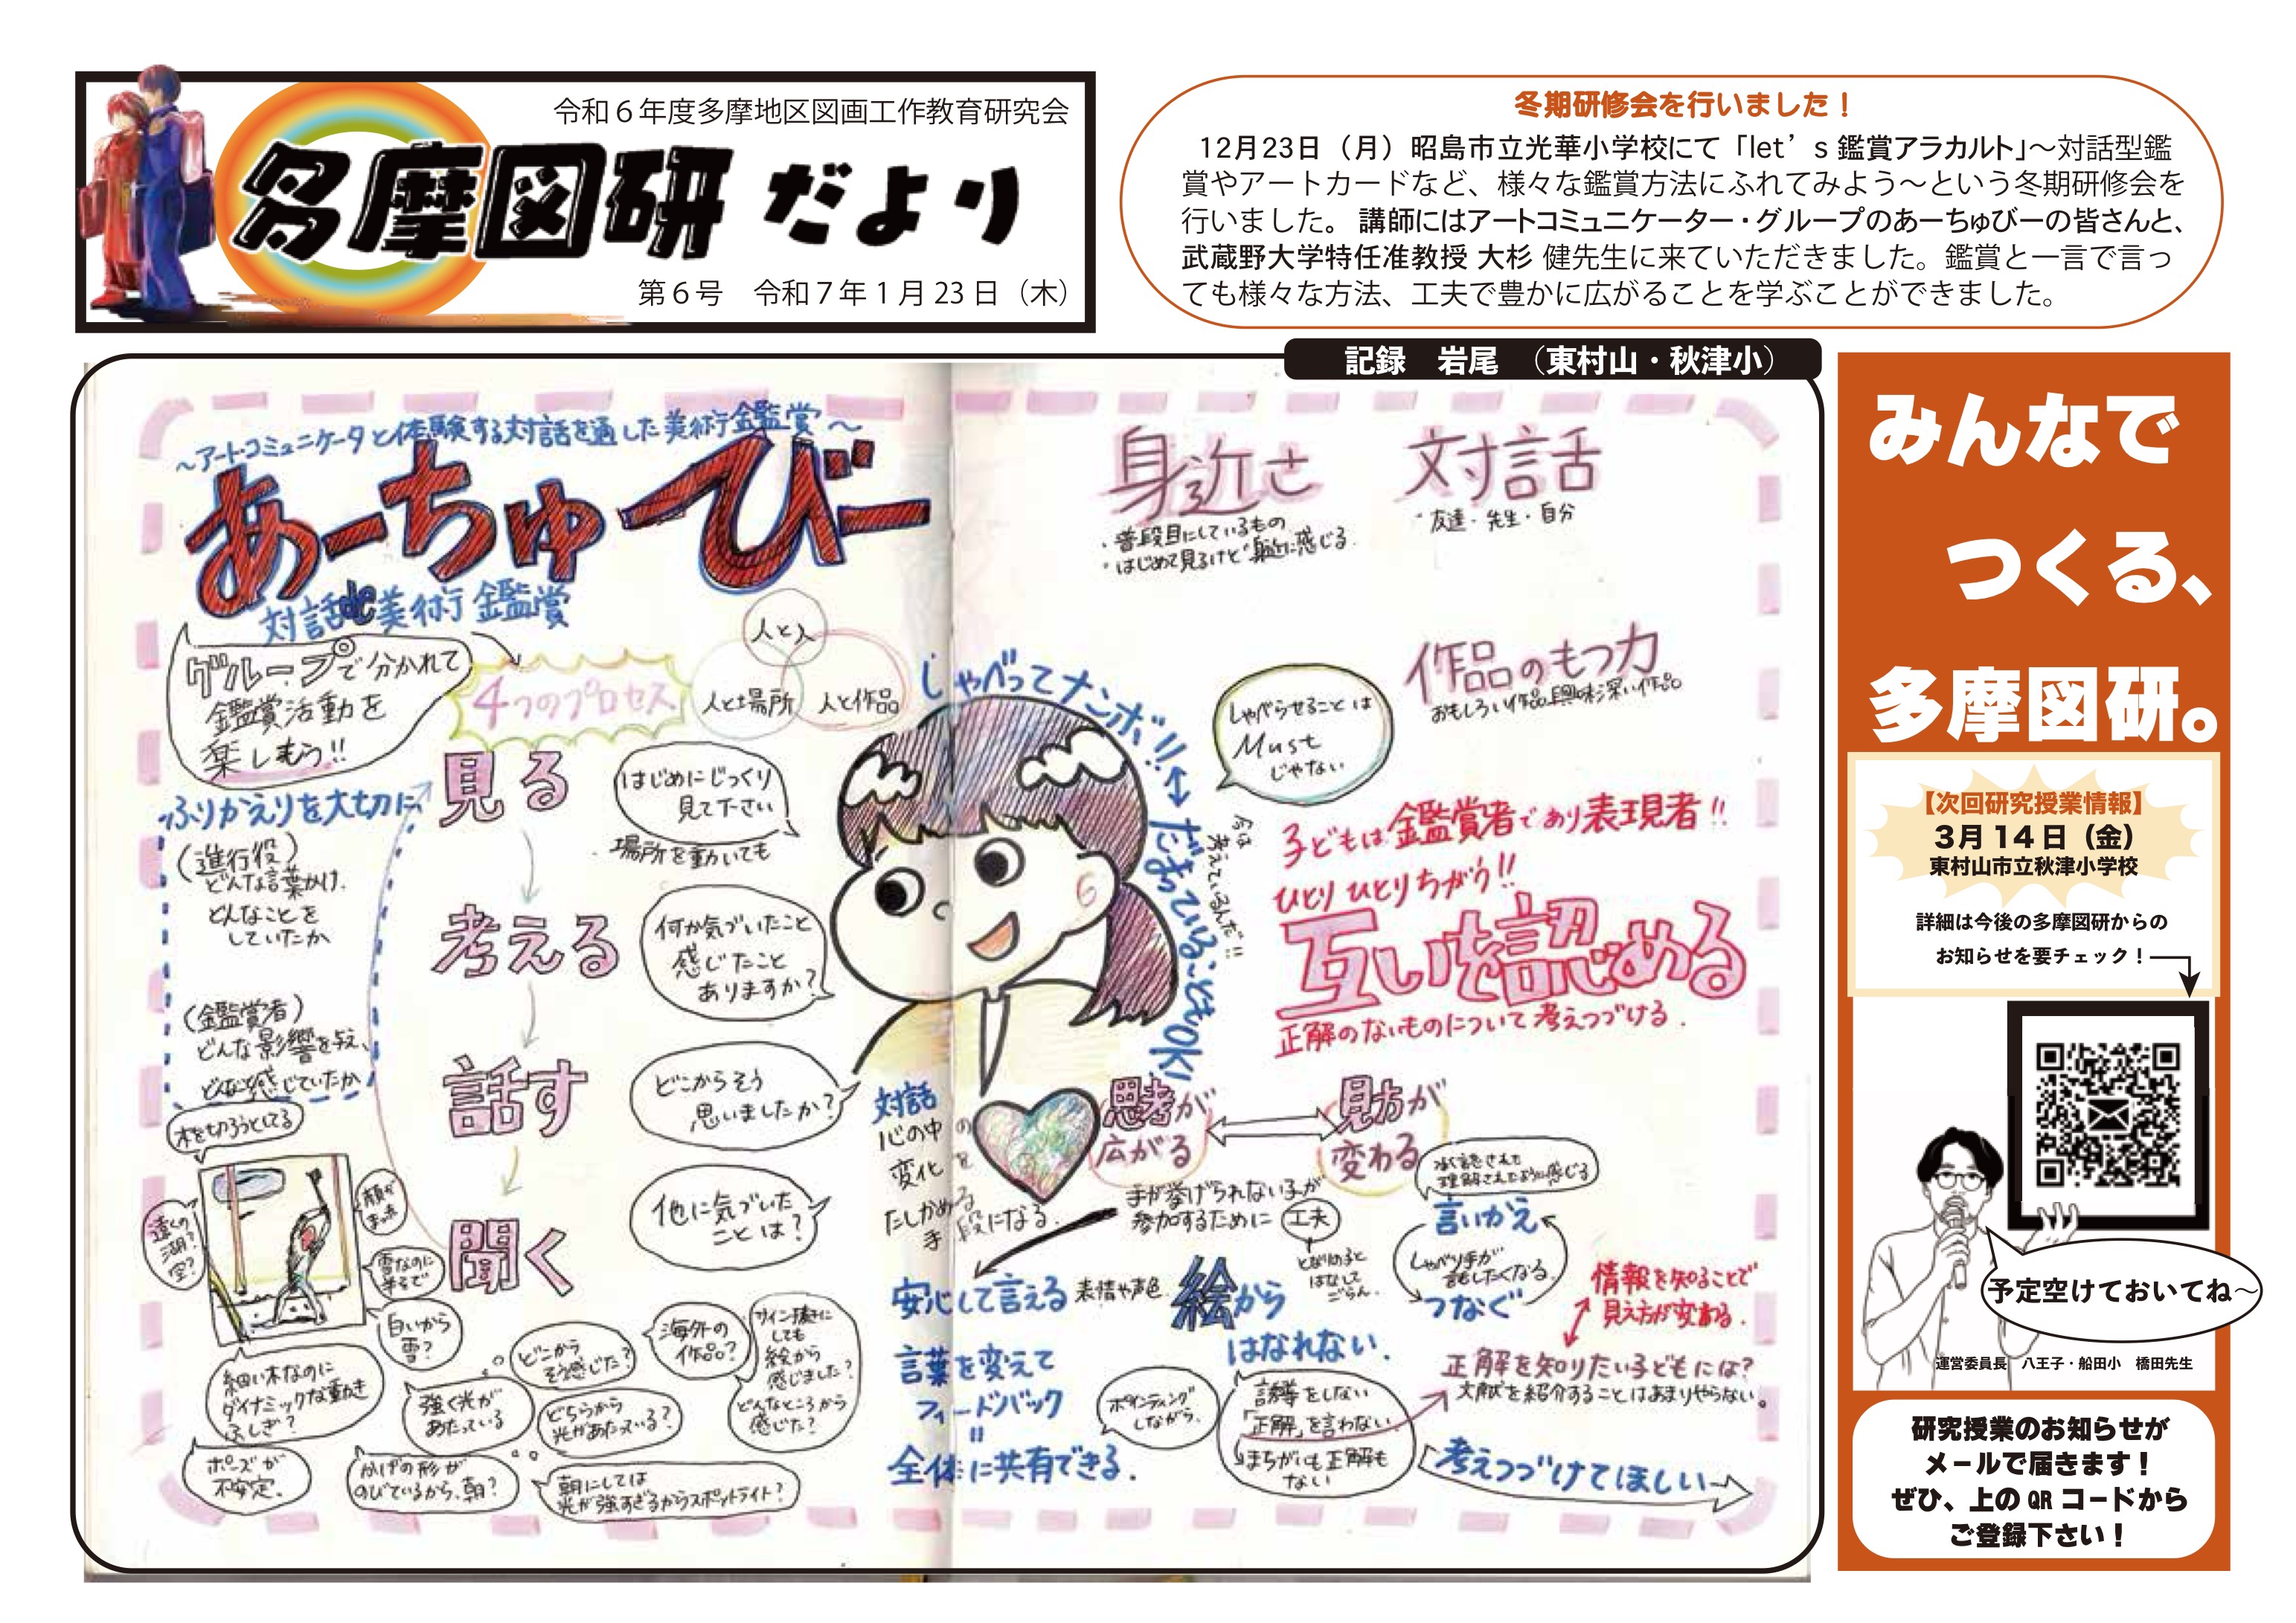 令和６年度多摩地区図画工作教育研究会
多摩図研だより
第６号　令和７年１月23日（木）
冬期研修会を行いました！
12月23日（月）昭島市立光華小学校にて「let’s鑑賞アラカルト」～対話型鑑
賞やアートカードなど、様々な鑑賞方法にふれてみよう～という冬期研修会を
行いました。講師にはアートコミュニケーター・グループのあーちゅびーの皆さんと、
武蔵野大学特任准教授 大杉 健先生に来ていただきました。鑑賞と一言で言っ
ても様々な方法、工夫で豊かに広がることを学ぶことができました。
記録　岩尾　（東村山・秋津小）
～アートコミュニケータと体験する対話を通した美術鑑賞～
あーちゅーびー
対話de美術鑑賞
グループで分かれて
鑑賞活動を
楽しもう!!
4つのプロセス
人と人
人と場所
人と作品
ふりかえりを大切に
（進行役）
どんな言葉かけ、
どんなことを
していたか
（鑑賞者）
どんな影響を与え、
どんな感じていたか
見る
はじめにじっくり
見て下さい
場所を動いても
考える
何か気づいたこと
感じたこと
ありますか？
話す
どこからそう
思いましたか？
聞く
他に気づいた
ことは？
木を切ろうとしてる
遠くの
湖？
空？
顔が
まっ赤
雪なのに
白いから
雪？
細い木なのに
ダイナミックな動き
ふしぎ？
ポーズが
不安定。
強く光が
あたっている
どこから
そう感じた？
どちらから
光があたっている？
かげの形が
のびているから、朝？
朝にしては
光が強すぎるからスポットライト？
海外の
作品？
サイン
しても
絵から
感じました？
どんなところから
感じた？
しゃべってナンボ!!↔だまっていることもOK!
今は
考えているんだ!!
身近さ
・普段目にしているもの
・はじめて見るけど身近に感じる
対話
・友達・先生・自分
しゃべらせることは
Must
じゃない
作品のもつ力
おもしろい作品、興味深い作品
子どもは鑑賞者であり表現者!!
ひとりひとりちがう!!
互いを認める
正解のないものについて考えつづける．
対話
心の中の
変化を
たしかめる
手段になる．
思考が
広がる
見方が
変わる
手が挙げられない子が
参加するために工夫
となりの子と
はなして
ごらん．
承認された
理解されたように感じる
言いかえ
しゃべり手が
話したくなる．
つなぐ
安心して言える
表情や声色
言葉を変えて
フィードバック
=
全体に共有できる．
絵から
はなれない．
ポインティング
しながら．
誘導をしない
「正解」を言わない
まちがいも正解も
ない
情報を知ることで
見え方が変わる．
正解を知りたい子どもには？
文献を紹介することはあまりやらない。
考えつづけてほしい
みんなで
つくる、
多摩図研。
【次回研究授業情報】
3月14日（金）
東村山市立秋津小学校
詳細は今後の多摩図研からの
お知らせを要チェック！
予定空けておいてね～
運営委員長　八王子・船田小　橋田先生
研究授業のお知らせが
メールで届きます！
ぜひ、上のQRコードから
ご登録下さい！